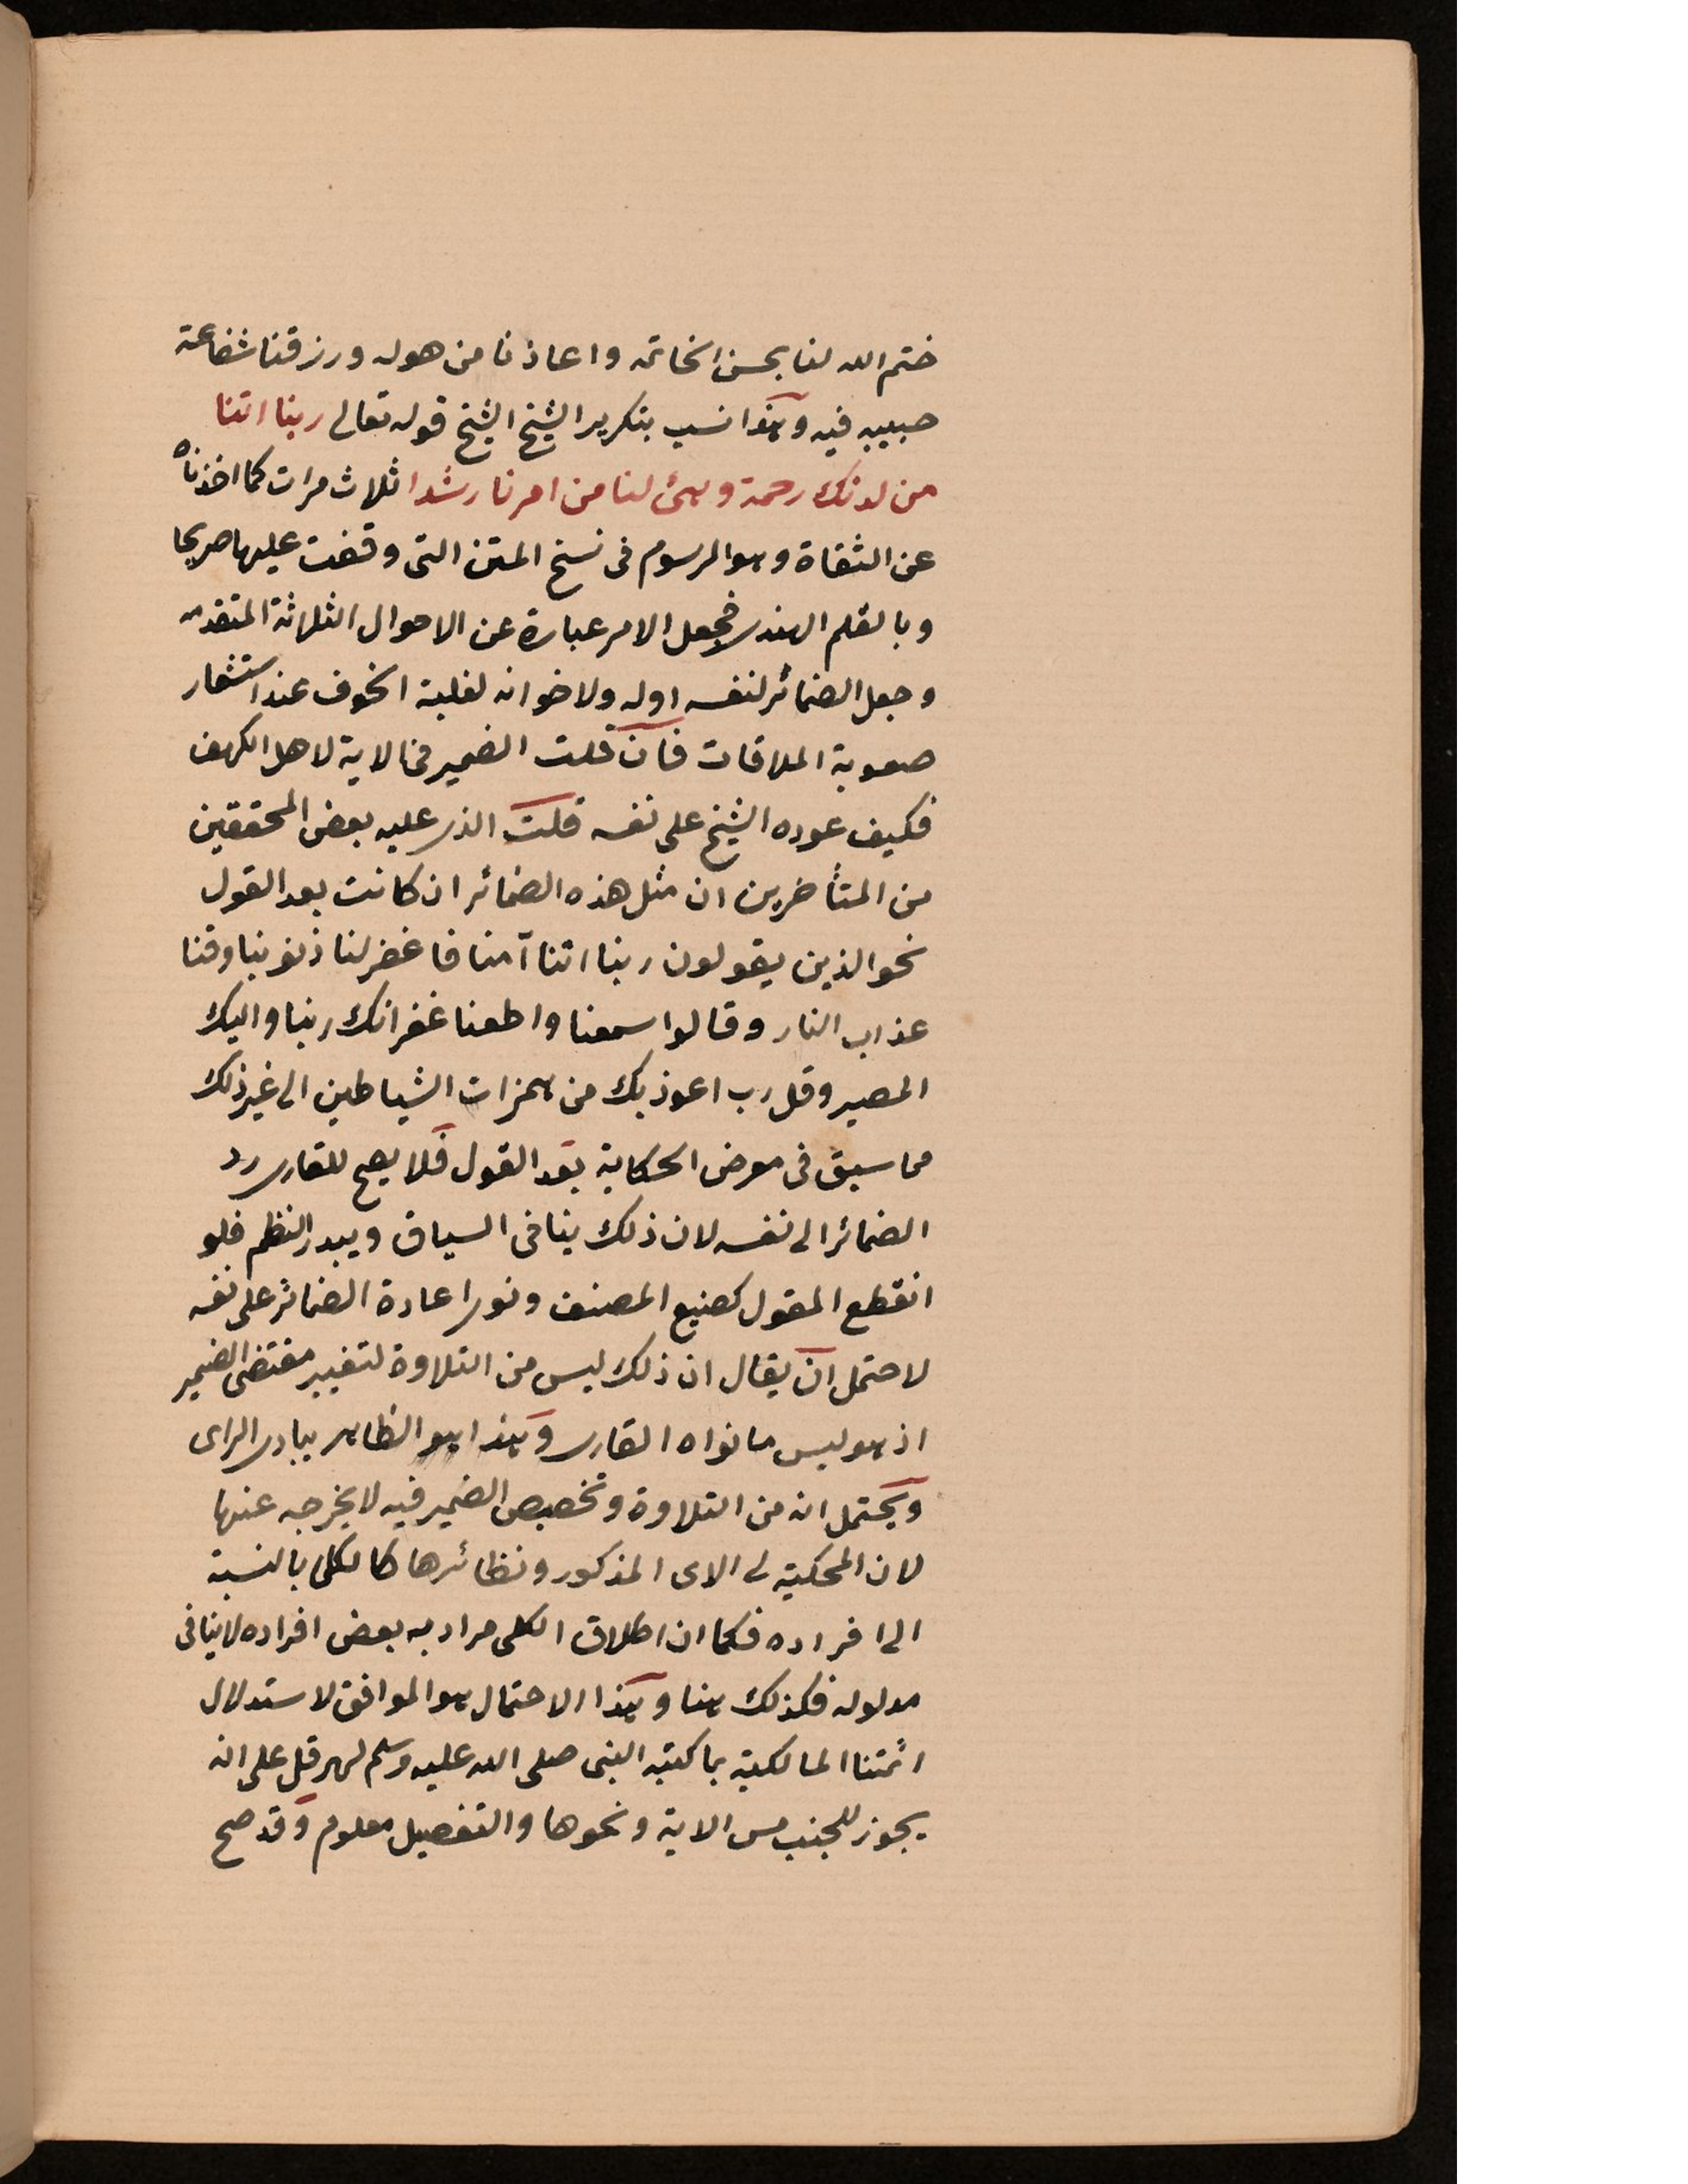 ختم الله لنا بحسن الخاتمه واعاذنا من هوله ورزقنا شفاعة
حبيبه فيه وهذا انسب بتكرير الشيخ الشيخ قوله تعالى ربنا اتنا
من لدنك رحمة وهيئ لنا من امرنا رشدا ثلاث مرات كما اخذناه
عن الثقاة وهو المرسوم فى نسخ المتن التى وقفت عليها صريحا
وبالقلم الهندى فجعل الامر عبارة عن الاحوال الثلاثة المتقدمه
وجعل الضمائر لنفسه اوله ولاخوانه لغلبة الخوف عند استشعار
صعوبة الملاقات فان قلت الضمير فى الاية لاهل الكهف
فكيف عوده الشيخ على نفسه قلت الذى عليه بعض المحققين
من المتأخرين ان مثل هذه الضمائر ان كانت بعد القول
نحو الذين يقولون ربنا اننا آمنا فاغفر لنا ذنوبنا وقنا
عذاب النار وقالوا سمعنا واطعنا غفرانك ربنا واليك
المصير وقل رب اعوذ بك من همزات الشياطين الى غير ذلك
مما سيق فى معرض الحكاية بعد القول فلا يصح للقارى رد
الضمائر الى نفسه لان ذلك ينافى السياق ويبدد النظم فلو
انقطع المقول كصنيع المصنف ونوى اعادة الضمائر على نفسه
لاحتمل ان يقال ان ذلك ليس من التلاوة لتغيير مقتضى الضمير
اذ هو ليس ما نواه القارى وهذا هو الظاهر ببادى الراى
ويحتمل انه من التلاوة وتخصيص الضمير فيه لا يخرجه عنها
لان المحكيه فى الاى المذكور ونظائرها كالكلى بالنسبة
الى افراده فكما ان اطلاق الكلى مراد به بعض افراده لا ينافى
مدلوله فكذلك هنا وهذا الاحتمال هو الموافق لاستدلال
ائمتنا المالكية بما كتبه النبى صلى الله عليه وسلم لهرقل على انه
يجوز للجنب مس الاية ونحوها والتفصيل معلوم وقد صح